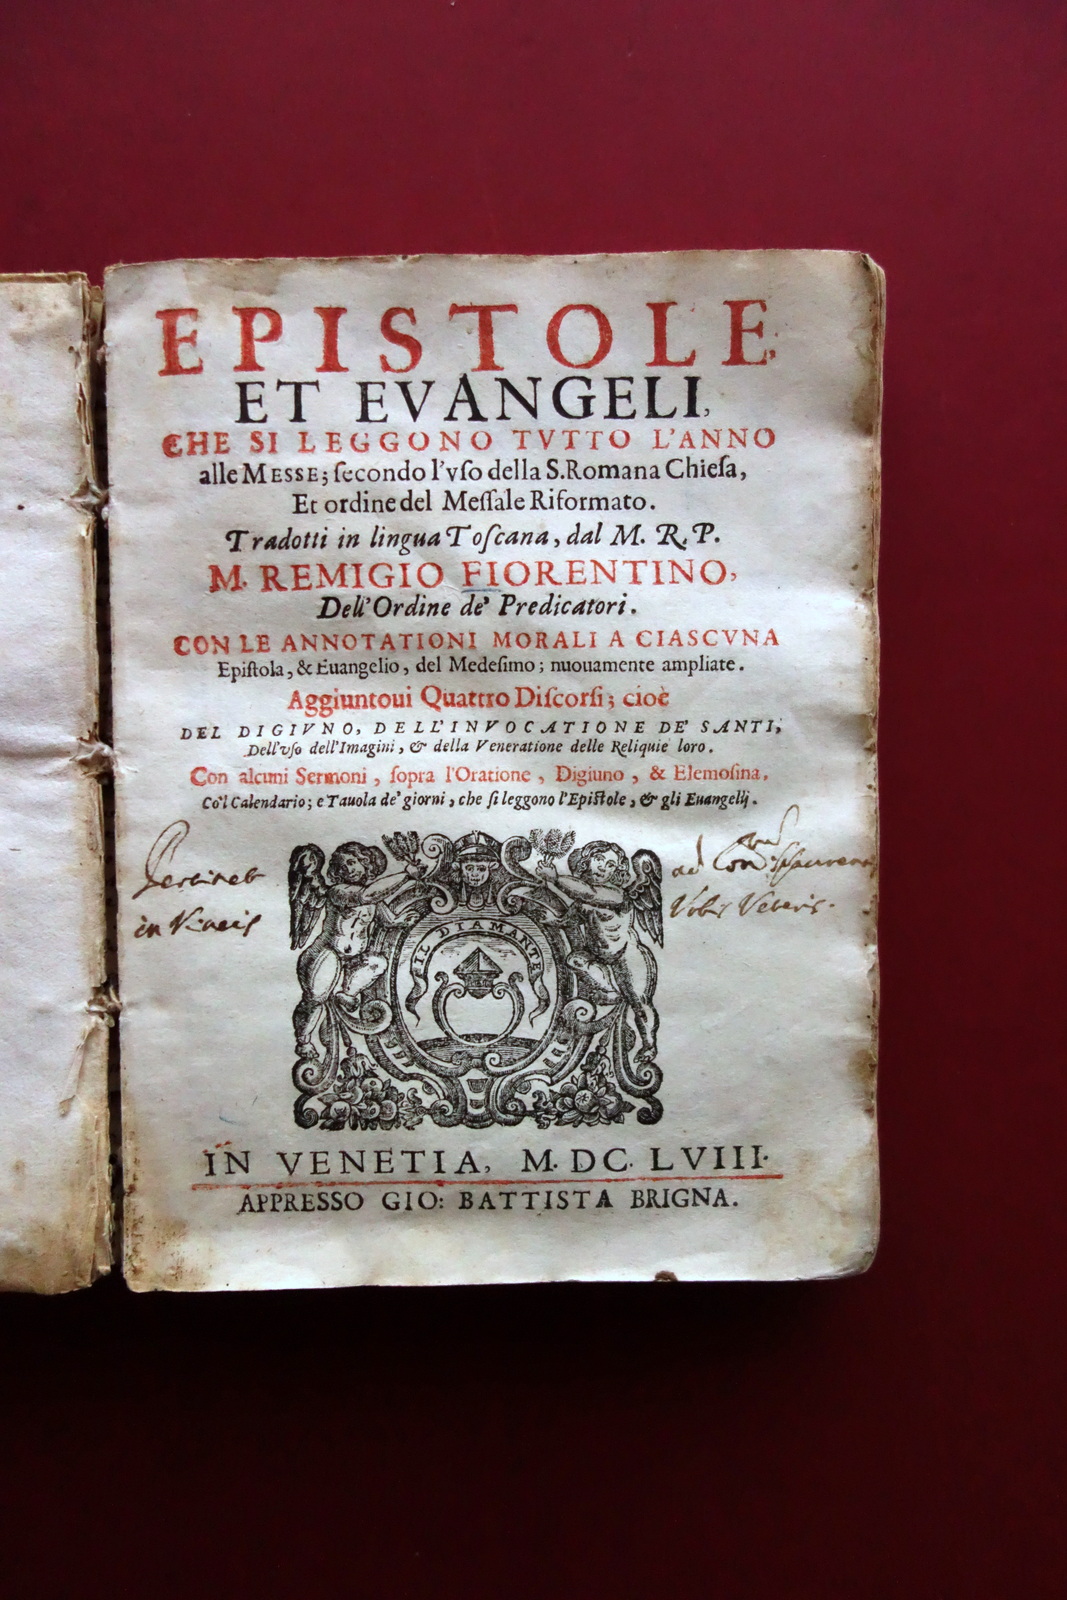 EPISTOLE,
ET EVANGELI,
CHE SI LEGGONO TVTTO L'ANNO
alle MESSE; ſecondo l'vſo della S. Romana Chieſa,
Et ordine del Meſſale Riformato.
Tradotti in lingua Toſcana, dal M. R. P.
M. REMIGIO FIORENTINO,
Dell'Ordine de' Predicatori.
CON LE ANNOTATIONI MORALI A CIASCVNA
Epiſtola, & Euangelio, del Medeſimo; nuouamente ampliate.
Aggiuntoui Quattro Diſcorſi; cioè
DEL DIGIVNO, DELL'INVOCATIONE DE' SANTI,
Dell'vſo dell'Imagini, & della Veneratione delle Reliquie loro.
Con alcuni Sermoni, ſopra l'Oratione, Digiuno, & Elemoſina,
Co'l Calendario; e Tauola de' giorni, che ſi leggono l'Epiſtole, & gli Euangelij.
Pertinet ad
IL DIAMANTE
IN VENETIA, M. DC. LVIII.
APPRESSO GIO: BATTISTA BRIGNA.